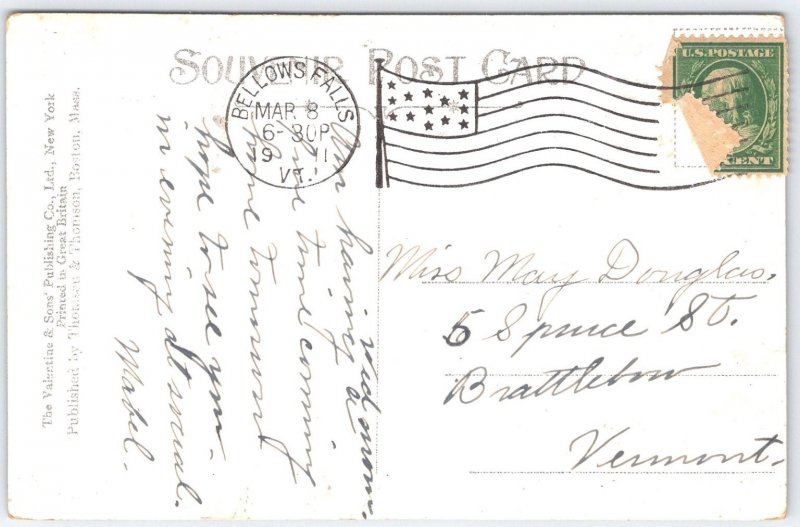 SOUVENIR POST CARD
BELLOWS FALLS
MAR 8
6-30P
19 11
VT.
U.S. POSTAGE
CENT
The Valentine & Sons' Publishing Co., Ltd., New York
Printed in Great Britain
Published by Thomson & Thomson, Boston, Mass.
Am having a
fine time coming
home tomorrow
hope to see you
in evening at social.
Mabel.
Miss May Douglas.
5 Spruce St.
Brattleboro
Vermont.